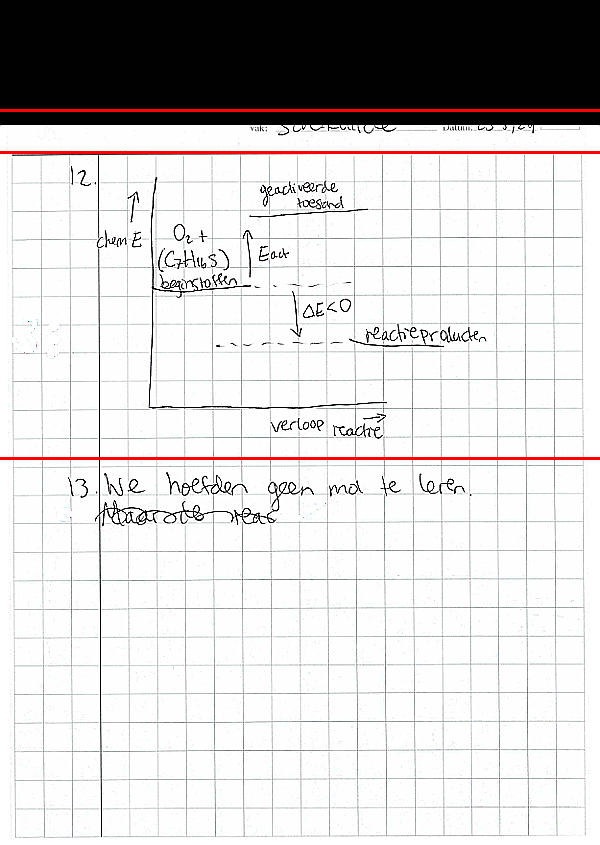 vak: Scheikunde Datum:
12.
geactiveerde
toesand
chem E
O2 +
(C7H16S)
beginstoffen
Eact
ΔE<0
reactieproducten
verloop reactie
13. We hoefden geen mol te leren.